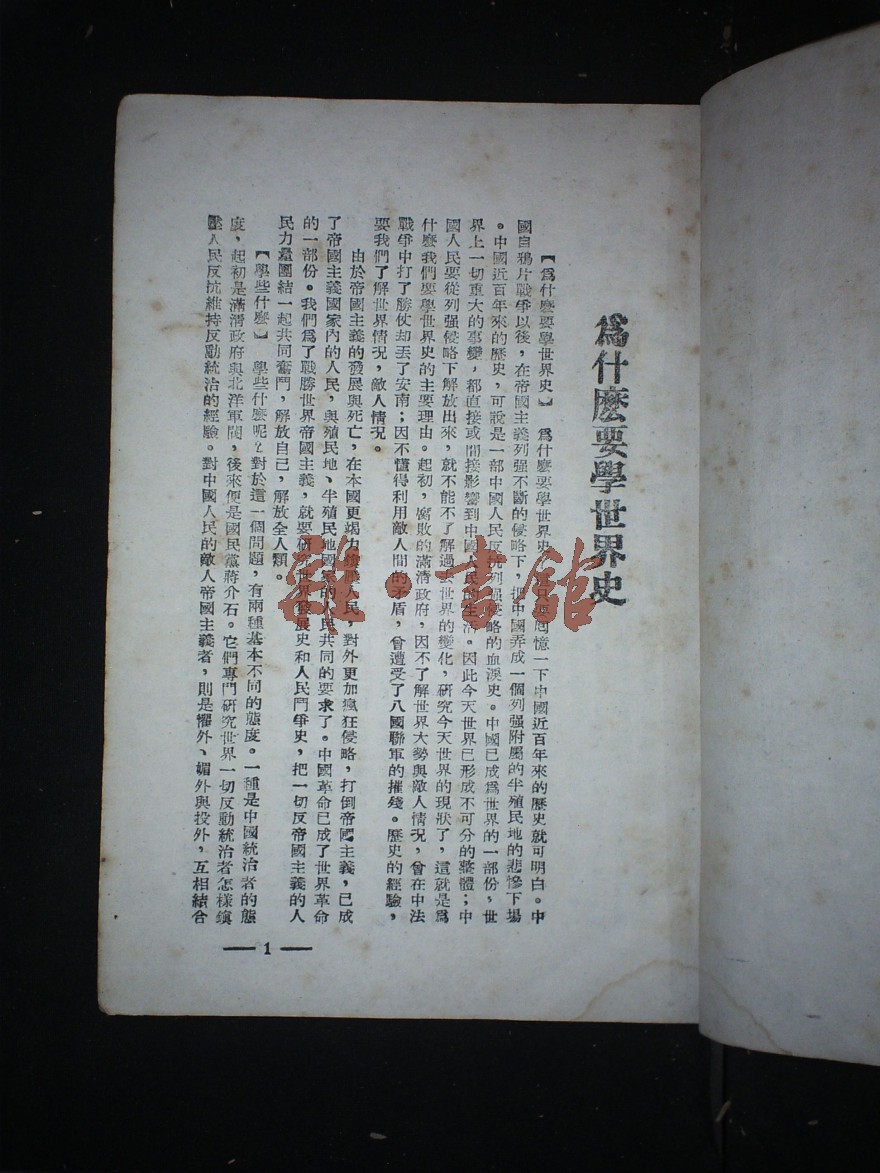 為什麽要學世界史
【為什麽要學世界史】　為什麽要學世界史　只要囘憶一下中國近百年來的歷史就可明白。中
國自鴉片戰爭以後，在帝國主義列强不斷的侵略下，把中國弄成一個列强附屬的半殖民地的悲慘下場
。中國近百年來的歷史，可說是一部中國人民反抗列强侵略的血淚史。中國已成為世界的一部份，世
界上一切重大的事變，都直接或間接影響到中國人民的生活。因此今天世界已形成不可分的整體；中
國人民要從列强侵略下解放出來，就不能不了解過去世界的變化，研究今天世界的現狀了，這就是為
什麽我們要學世界史的主要理由。起初，腐敗的滿清政府，因不了解世界大勢與敵人情況，曾在中法
戰爭中打了勝仗却丟了安南；因不懂得利用敵人間的矛盾，曾遭受了八國聯軍的摧殘。歷史的經驗，
要我們了解世界情況，敵人情況。
由於帝國主義的發展與死亡，在本國更竭力　　人民，對外更加瘋狂侵略，打倒帝國主義，已成
了帝國主義國家內的人民，與殖民地、半殖民地國家的人民共同的要求了。中國革命已成了世界革命
的一部份。我們為了戰勝世界帝國主義，就要研究世界發展史和人民鬥爭史，把一切反帝國主義的人
民力量團結一起共同奮鬥，解放自己，解放全人類。
【學些什麽】　學些什麽呢？對於這一個問題，有兩種基本不同的態度。一種是中國統治者的態
度，起初是滿清政府與北洋軍閥，後來便是國民黨蔣介石。它們專門研究世界一切反動統治者怎樣鎮
壓人民反抗維持反動統治的經驗。對中國人民的敵人帝國主義者，則是懼外、媚外與投外，互相結合
— 1 —
雜·書館